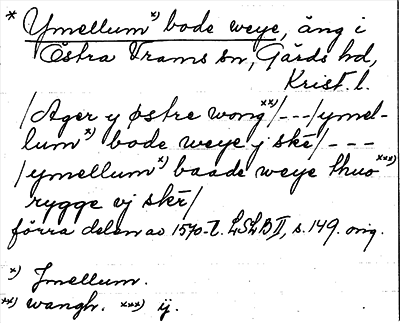 * Ymellum *) bode weye, äng i
Östra Vrams sn, Gärds hd,
Krist. l.
/Ager y østre wong **)/---/ymel-
lum *) bode weye j skē/---
/ymellum *) baade weye thuo ***)
rygge vj skē/
förra delen av 1570-t. LSLB II, s. 149. orig.
*) Jmellum.
**) wangh. ***) ij.